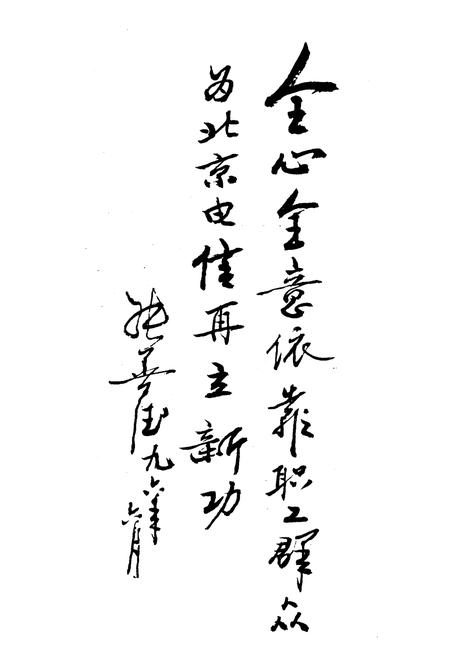 全心全意依靠职工群众
为北京电信再立新功
善 九六年
六月